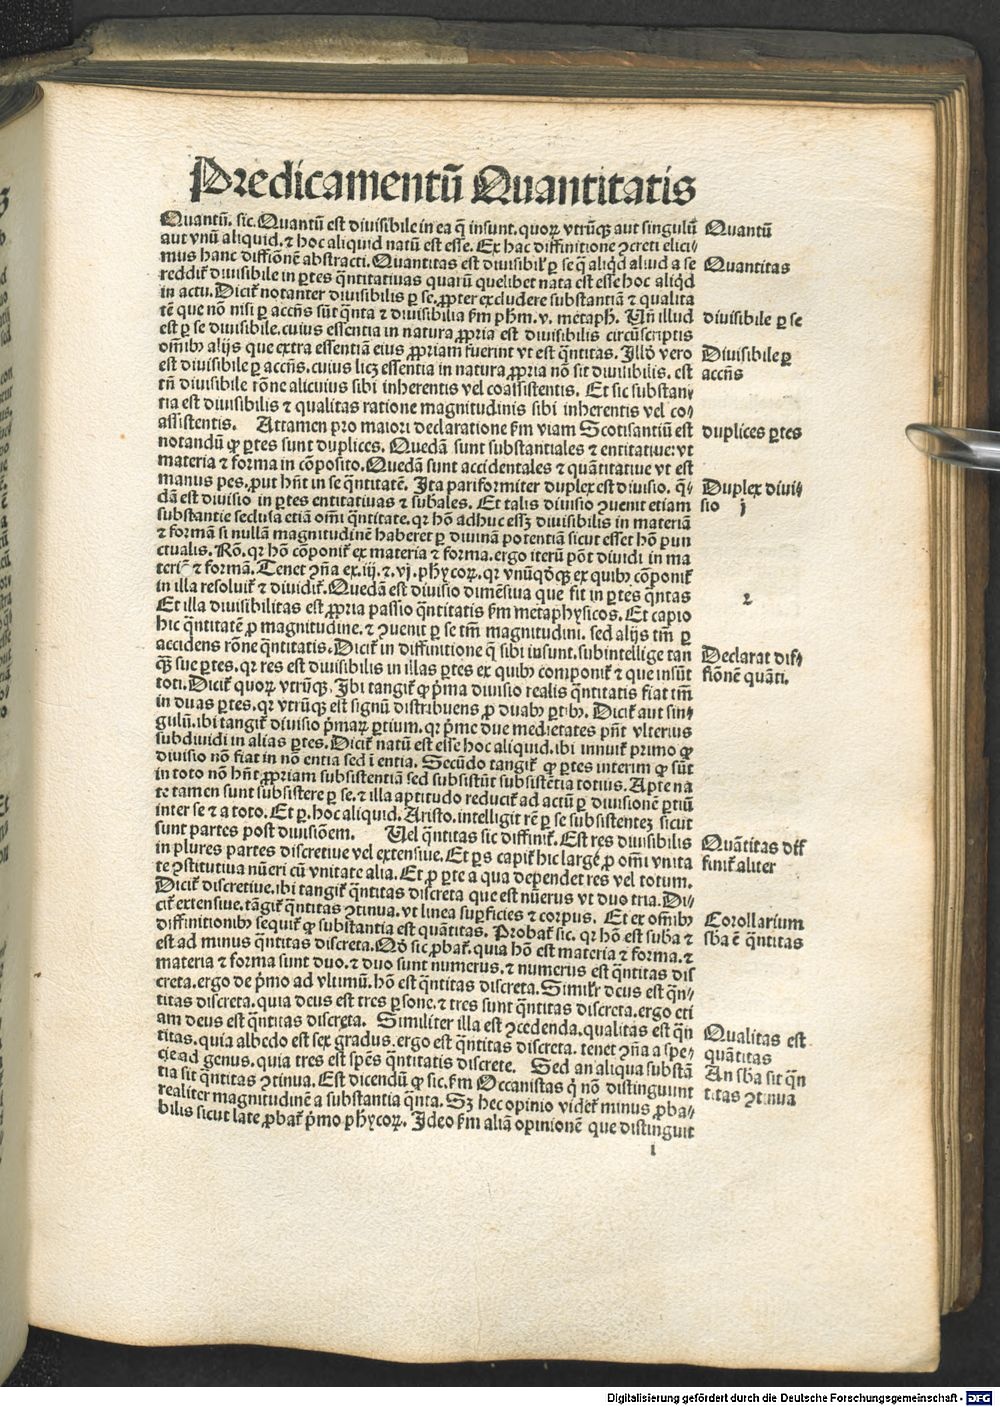 Predicamentū Quantitatis
Quantū. sic. Quantū est diuisibile in ea q̄ insunt. quoꝝ vtrūqꝫ aut singulū
aut vnū aliquid. ⁊ hoc aliquid natū est esse. Ex hac diffinitione ꝯcreti elici⸗
mus hanc diffionē abstracti. Quantitas est diuisibil' ꝑ se q̄ aliq̇d aliud a se
reddit̃ diuisibile in ꝑtes q̄ntitatiuas quarū quelibet nata est esse hoc aliq̇d
in actu. Dicit̃ notanter diuisibilis ꝑ se. ꝓpter excludere substantiā ⁊ qualita
tē que nō nisi ꝑ accn̄s sūt q̄nta ⁊ diuisibilia ẜm pħm. v. metapħ. Vn̄ illud
est ꝑ se diuisibile. cuius essentia in natura ꝓpria est diuisibilis circūscriptis
om̄ibꝫ alijs que extra essentiā eius ꝓpriam fuerint vt est q̄ntitas. Illd̓ vero
est diuisibile ꝑ accn̄s. cuius licꝫ essentia in natura ꝓpria nō sit diuisibilis. est
tn̄ diuisibile rōne alicuius sibi inherentis vel coassistentis. Et sic substan⸗
tia est diuisibilis ⁊ qualitas ratione magnitudinis sibi inherentis vel co⸗
assistentis. Attamen pro maiori declaratione ẜm viam Scotisantiū est
notandū ꝙ ꝑtes sunt duplices. Quedā sunt substantiales ⁊ entitatiue: vt
materia ⁊ forma in cōposito. Quedā sunt accidentales ⁊ quātitatiue vt est
manus pes. ꝓut hn̄t in se q̄ntitatē. Ita pariformiter duplex est diuisio. q̄⸗
dā est diuisio in ꝑtes entitatiuas ⁊ sub̄ales. Et talis diuisio ꝯuenit etiam
substantie seclusa etiā om̄i q̄ntitate. qꝛ hō adhuc essꝫ diuisibilis in materiā
⁊ formā si nullā magnitudinē haberet ꝑ diuinā potentiā sicut esset hō pun
ctualis. Rō. qꝛ hō cōponit̃ ex materia ⁊ forma. ergo iterū pōt diuidi in ma
teriā ⁊ formā. Tenet ꝯn̄a ex. iij. ⁊. vj. phycoꝝ. qꝛ vnūqd̓qꝫ ex quibꝫ cōponit̃
in illa resoluit̃ ⁊ diuidit̃. Quedā est diuisio dimēsiua que fit in ꝑtes q̄ntas
Et illa diuisibilitas est ꝓpria passio q̄ntitatis ẜm metaphysicos. Et capio
hic q̄ntitatē ꝓ magnitudine. ⁊ ꝯuenit ꝑ se tm̄ magnitudini. sed alijs tm̄ ꝑ
accidens rōne q̄ntitatis. Dicit̃ in diffinitione q̄ sibi insunt. subintellige tan
q̄ꝫ sue ꝑtes. qꝛ res est diuisibilis in illas ꝑtes ex quibꝫ componit̃ ⁊ que insūt
toti. Dicit̃ quoꝝ vtrūqꝫ. Ibi tangit̃ ꝙ p̄ma diuisio realis q̄ntitatis fiat tm̄
in duas ꝑtes. qꝛ vtrūqꝫ est signū distribuens ꝓ duabꝫ ꝑtibꝫ. Dicit̃ aut sin⸗
gulū. ibi tangit̃ diuisio p̄maꝝ ꝑtium. qꝛ p̄me due medietates pn̄t vlterius
subdiuidi in alias ꝑtes. Dicit̃ natū est esse hoc aliquid. ibi innuit̃ primo ꝙ
diuisio nō fiat in nō entia sed ī entia. Secūdo tangit̃ ꝙ ꝑtes interim ꝙ sūt
in toto nō hn̄t ꝓpriam subsistentiā sed subsistūt subsistētia totius. Apte na
te tamen sunt subsistere ꝑ se. ⁊ illa aptitudo reducit̃ ad actū ꝑ diuisionē ꝑtiū
inter se ⁊ a toto. Et ꝑ. hoc aliquid. Aristo. intelligit rē ꝑ se subsistenteꝫ sicut
sunt partes post diuisiōem. Vel q̄ntitas sic diffinit̃. Est res diuisibilis
in plures partes discretiue vel extensiue. Et ꝑs capit̃ hic large. ꝓ om̄i vnita
te ꝯstitutiua nūeri cū vnitate alia. Et ꝓ ꝑte a qua dependet res vel totum.
Dicit̃ discretiue. ibi tangit̃ q̄ntitas discreta que est nūerus vt duo tria. Di⸗
cit̃ extensiue. tāgit̃ q̄ntitas ꝯtinua. vt linea suꝑficies ⁊ corpus. Et ex om̄ibꝫ
diffinitionibꝫ sequit̃ ꝙ substantia est quātitas. Probat̃ sic. qꝛ hō est sub̄a ⁊
est ad minus q̄ntitas discreta. Qd̓ sic ꝓbat̃. quia hō est materia ⁊ forma. ⁊
materia ⁊ forma sunt duo. ⁊ duo sunt numerus. ⁊ numerus est q̄ntitas dis
creta. ergo de p̄mo ad vltimū. hō est q̄ntitas discreta. Similit̓ deus est q̄n⸗
titas discreta. quia deus est tres ꝑsone. ⁊ tres sunt q̄ntitas discreta. ergo eti
am deus est q̄ntitas discreta. Similiter illa est ꝯcedenda. qualitas est q̄n
titas. quia albedo est sex gradus. ergo est q̄ntitas discreta. tenet ꝯn̄a a spe⸗
cie ad genus. quia tres est spēs q̄ntitatis discrete. Sed an aliqua substā
tia sit q̄ntitas ꝯtinua. Est dicendū ꝙ sic. ẜm Occanistas q̇ nō distinguunt
realiter magnitudinē a substantia q̄nta. Sꝫ hec opinio videt̃ minus ꝓba⸗
bilis sicut late ꝓbat̃ p̄mo phycoꝝ. Ideo ẜm aliā opinionē que distinguit
Quantū
Quantitas
diuisibile ꝑ se
Diuisibile ꝑ
accn̄s
duplices ꝑtes
Duplex diui⸗
sio j
2
Declarat dif⸗
fiōnē quāti.
Quātitas dif
finit̃ aliter
Corollarium
sb̄a ē q̄ntitas
Qualitas est
quātitas
An sb̄a sit q̄n
titas ꝯtinua
i
Digitalisierung gefördert durch die Deutsche Forschungsgemeinschaft - DFG